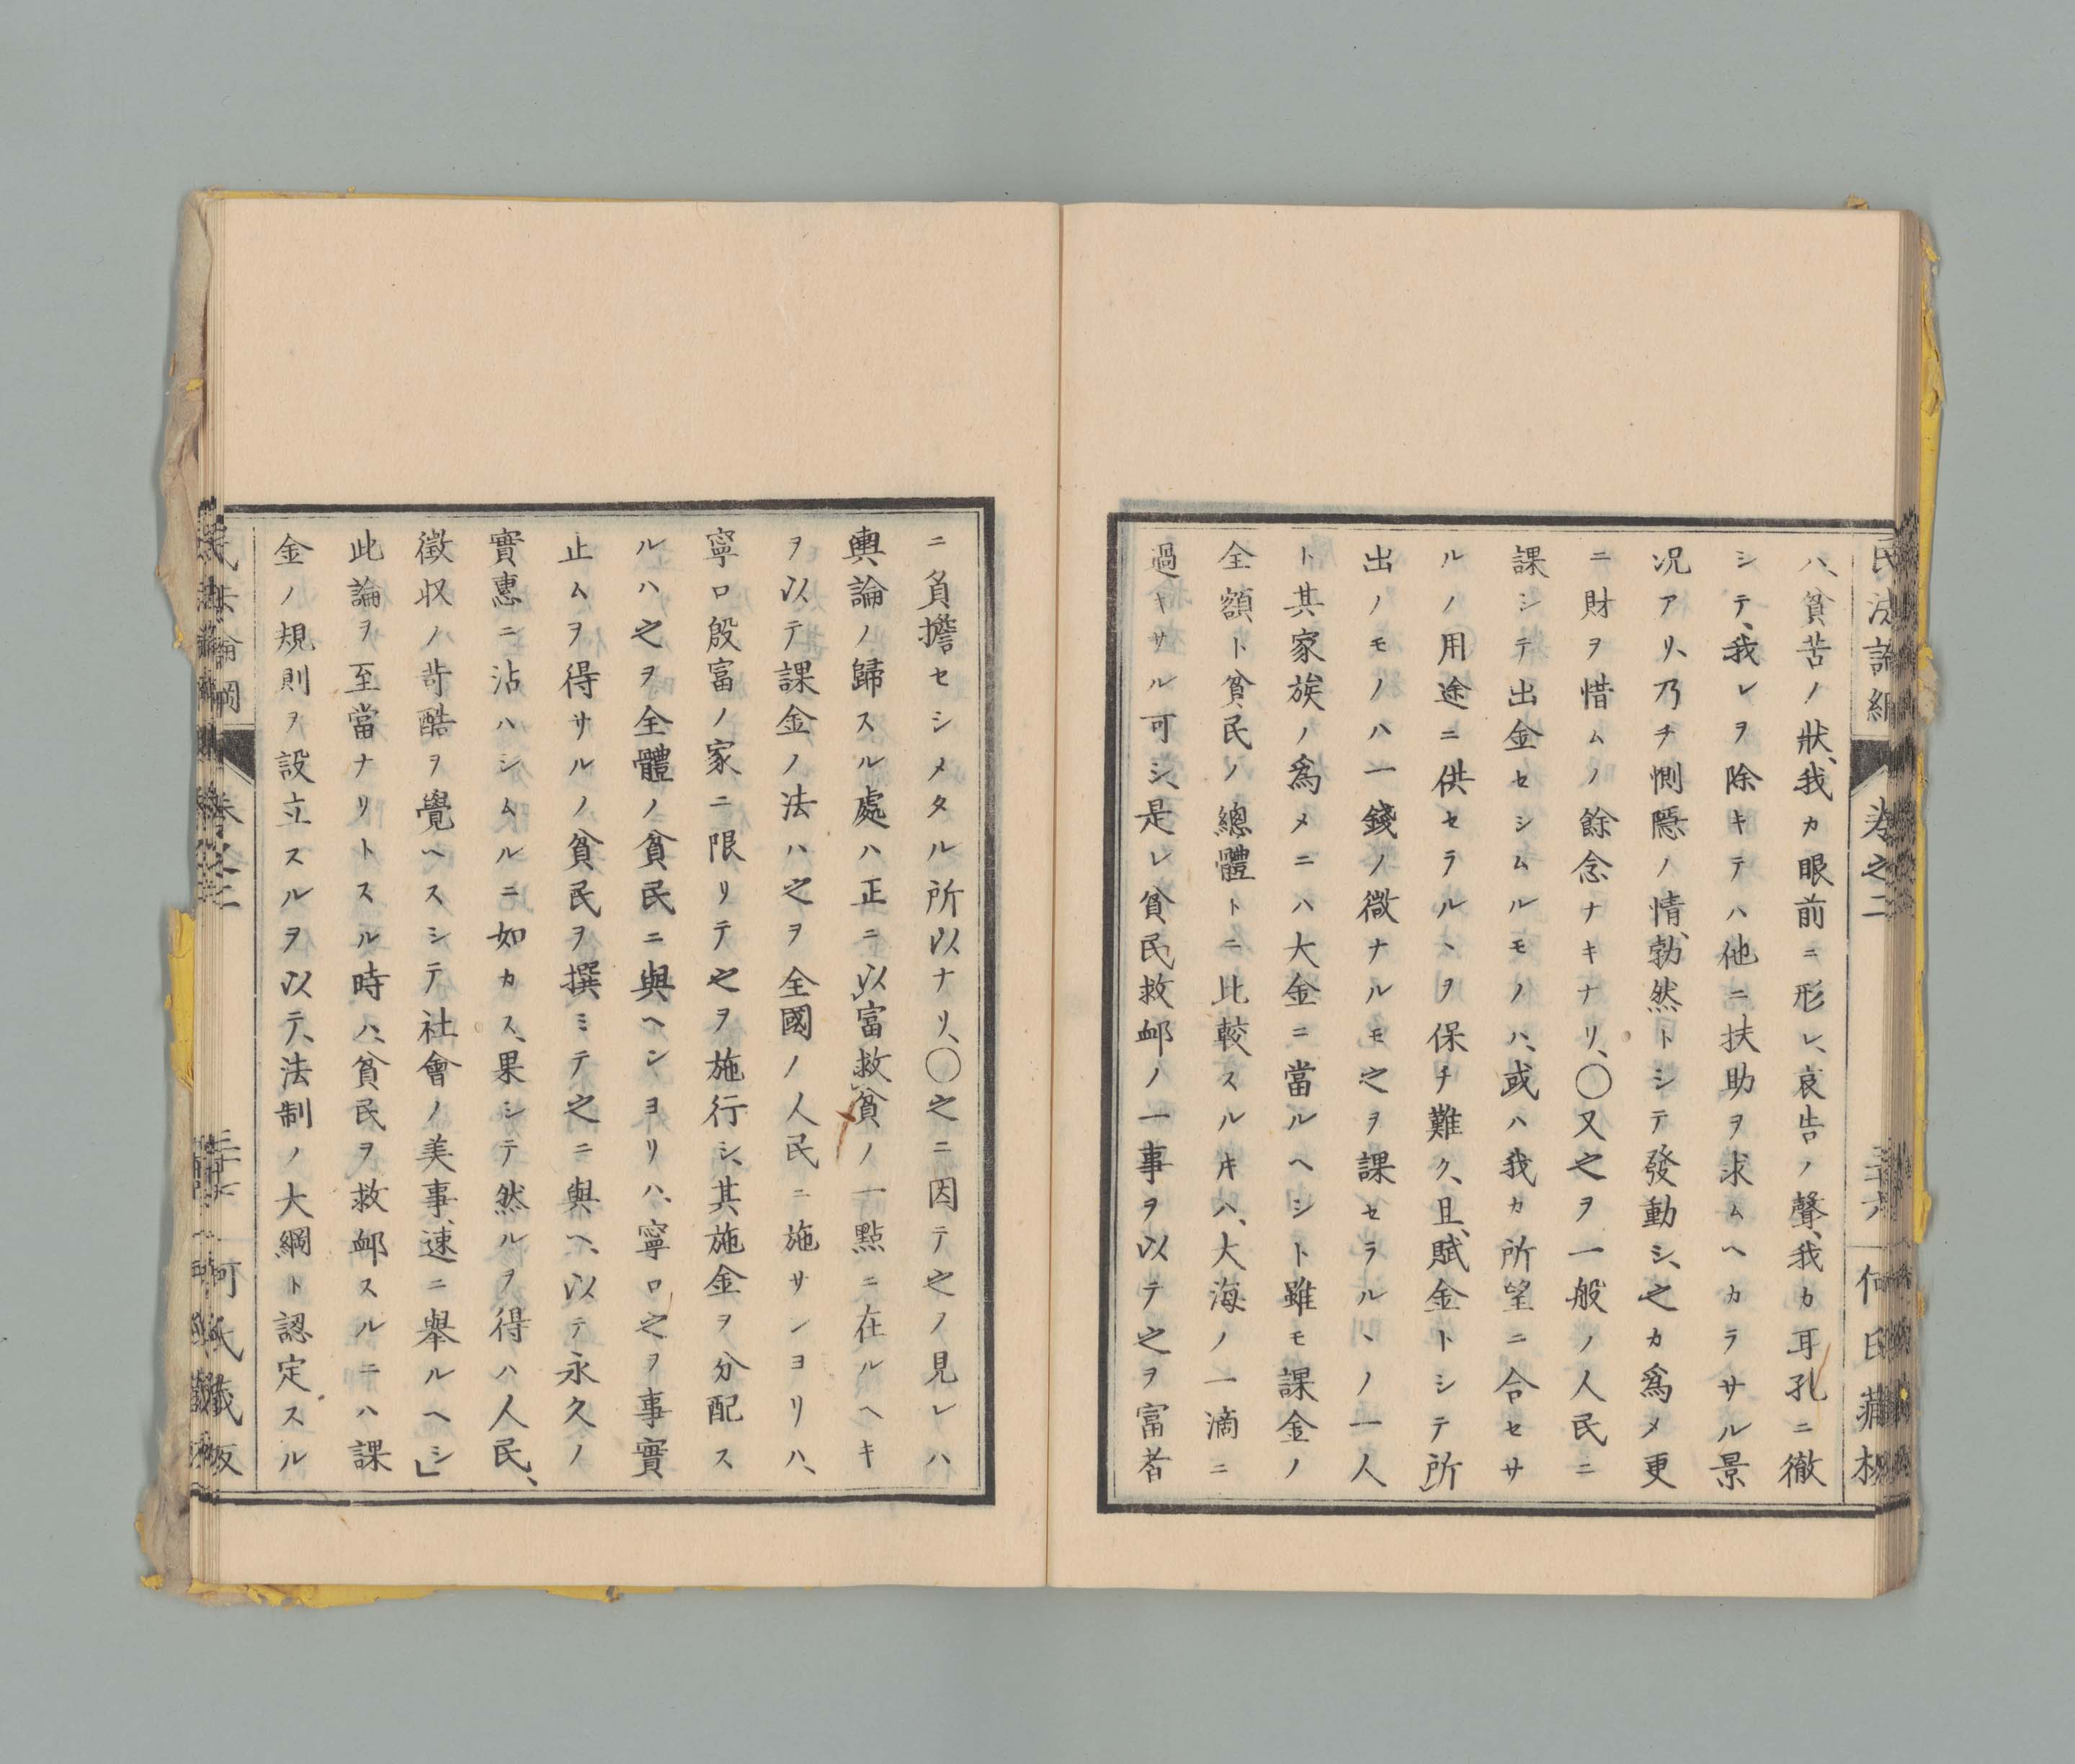 民法論綱 卷之二 三十六 何氏藏板
ハ、貧苦ノ狀、我カ眼前ニ形レ、哀告ノ聲、我カ耳孔ニ徹
シテ、我レヲ除キテハ他ニ扶助ヲ求ムヘカラサル景
况アリ、乃チ惻隱ノ情、勃然トシテ發動シ、之カ爲メ更
ニ財ヲ惜ムノ餘念ナキナリ、○又之ヲ一般ノ人民ニ
課シテ出金セシムルモノハ、或ハ我カ所望ニ合セサ
ルノ用途ニ供セラルヽヲ保チ難ク、且、賦金トシテ所
出ノモノハ一錢ノ微ナルモ之ヲ課セラルヽノ一人
ト其家族ノ爲メニハ大金ニ當ルヘシト雖モ課金ノ
全額ト貧民ノ總體トニ比較スルキハ、大海ノ一滴ニ
過キサル可シ、是レ貧民救䘏ノ一事ヲ以テ之ヲ富者
ニ負擔セシメタル所以ナリ、○之ニ因テ之ノ見レハ
輿論ノ歸スル處ハ正ニ以富救貧ノ一點ニ在ルヘキ
ヲ以テ課金ノ法ハ之ヲ全國ノ人民ニ施サンヨリハ、
寧ロ殷富ノ家ニ限リテ之ヲ施行シ、其施金ヲ分配ス
ルハ之ヲ全體ノ貧民ニ與ヘンヨリハ、寧ロ之ヲ事實
止ムヲ得サルノ貧民ヲ撰ミテ之ニ與ヘ、以テ永久ノ
實惠ニ沾ハシムルニ如カス、果シテ然ルヲ得ハ人民、
徵収ノ苛酷ヲ覺ヘスシテ社會ノ美事、速ニ舉ルヘシ」
此論ヲ至當ナリトスル時ハ、貧民ヲ救䘏スルニハ課
金ノ規則ヲ設立スルヲ以テ、法制ノ大綱ト認定スル
民法論綱 卷之二 何氏藏板